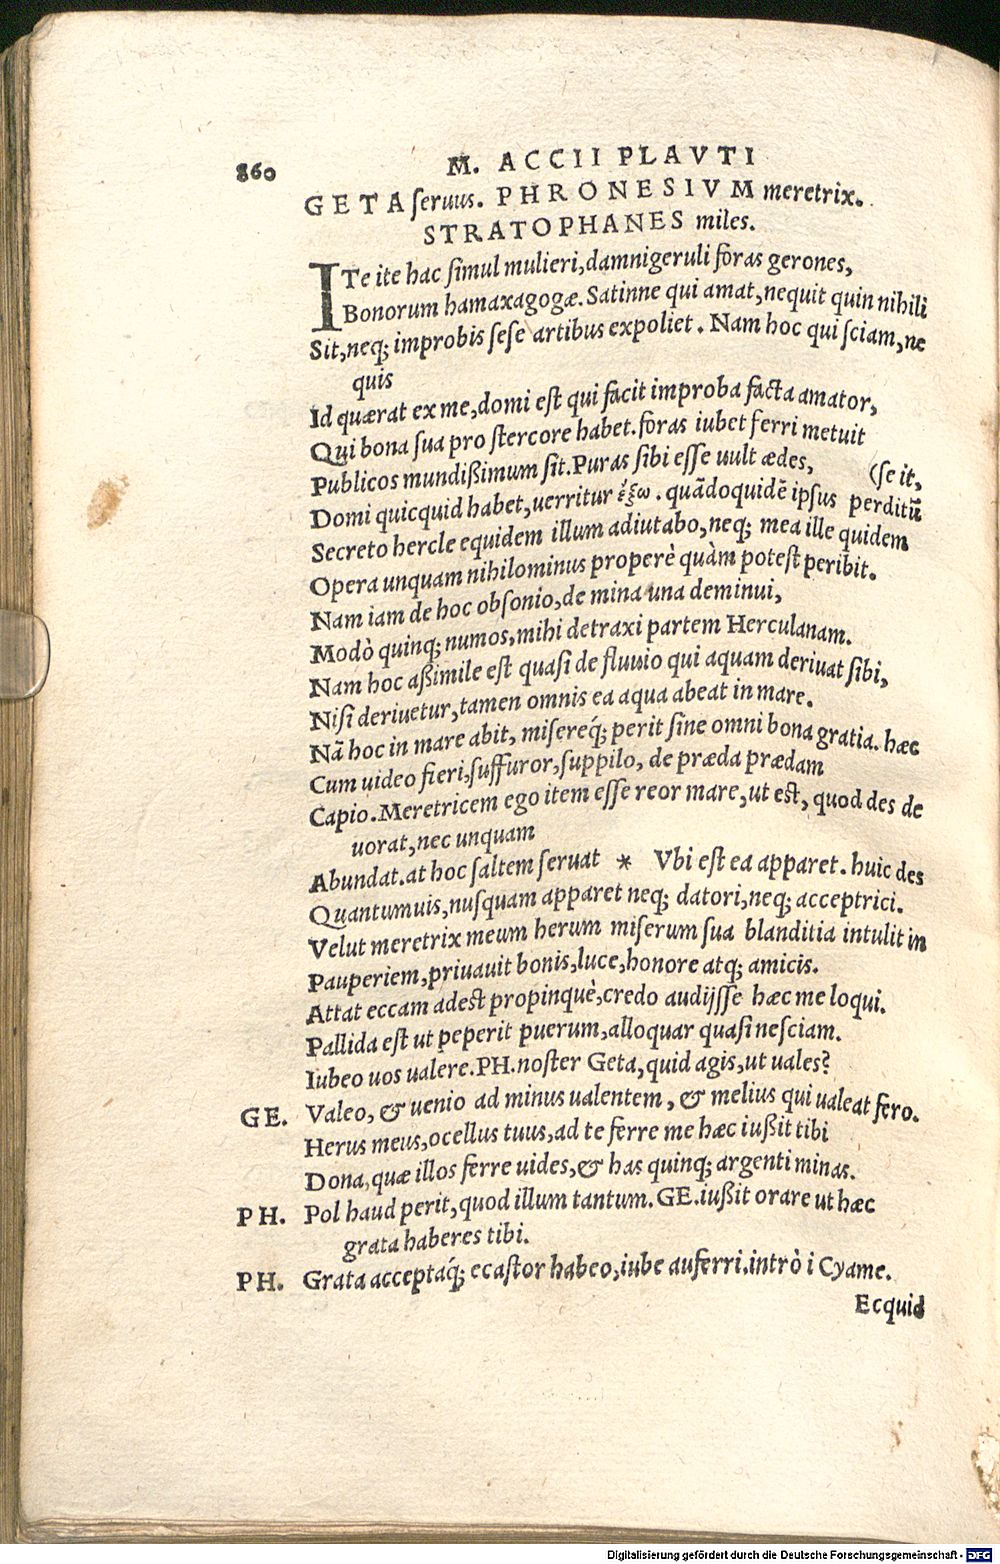 860
M. ACCII PLAVTI
GETA seruus. PHRONESIVM meretrix.
STRATOPHANES miles.
ITe ite hac simul mulieri, damnigeruli foras gerones,
Bonorum hamaxagogæ. Satinne qui amat, nequit quin nihili
Sit, neq; improbis sese artibus expoliet. Nam hoc qui sciam, ne
quis
Id quærat ex me, domi est qui facit improba facta amator,
Qui bona sua pro stercore habet. foras iubet ferri metuit
Publicos mundißimum sit. Puras sibi esse uult ædes, (se it,
Domi quicquid habet, uerritur ἔξω. quãdoquidẽ ipsus perditũ
Secreto hercle equidem illum adiutabo, neq; mea ille quidem
Opera unquam nihilominus properè quàm potest peribit.
Nam iam de hoc obsonio, de mina una deminui,
Modò quinq; numos, mihi detraxi partem Herculanam.
Nam hoc aßimile est quasi de fluuio qui aquam deriuat sibi,
Nisi deriuetur, tamen omnis ea aqua abeat in mare.
Nã hoc in mare abit, misereq́; perit sine omni bona gratia. hæc
Cum uideo fieri, suffuror, suppilo, de præda prædam
Capio. Meretricem ego item esse reor mare, ut est, quod des de
uorat, nec unquam
Abundat. at hoc saltem seruat * Vbi est ea apparet. huic des
Quantumuis, nusquam apparet neq; datori, neq; acceptrici.
Velut meretrix meum herum miserum sua blanditia intulit in
Pauperiem, priuauit bonis, luce, honore atq; amicis.
Attat eccam adest propinquè, credo audijsse hæc me loqui.
Pallida est ut peperit puerum, alloquar quasi nesciam.
Iubeo uos ualere. PH. noster Geta, quid agis, ut uales?
GE. Valeo, & uenio ad minus ualentem, & melius qui ualeat fero.
Herus meus, ocellus tuus, ad te ferre me hæc iußit tibi
Dona, quæ illos ferre uides, & has quinq; argenti minas.
PH. Pol haud perit, quod illum tantum. GE. iußit orare ut hæc
grata haberes tibi.
PH. Grata acceptaq́; ecastor habeo, iube auferri. intrò i Cyame.
Ecquid
Digitalisierung gefördert durch die Deutsche Forschungsgemeinschaft - DFG